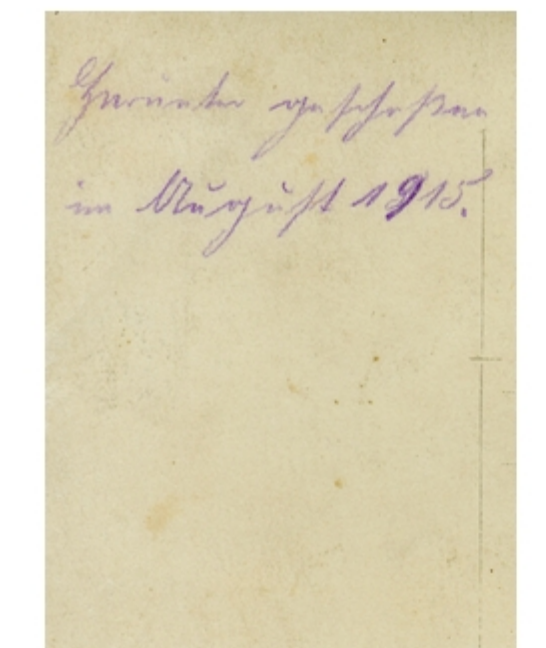 Herunter geschoßen
im August 1915.